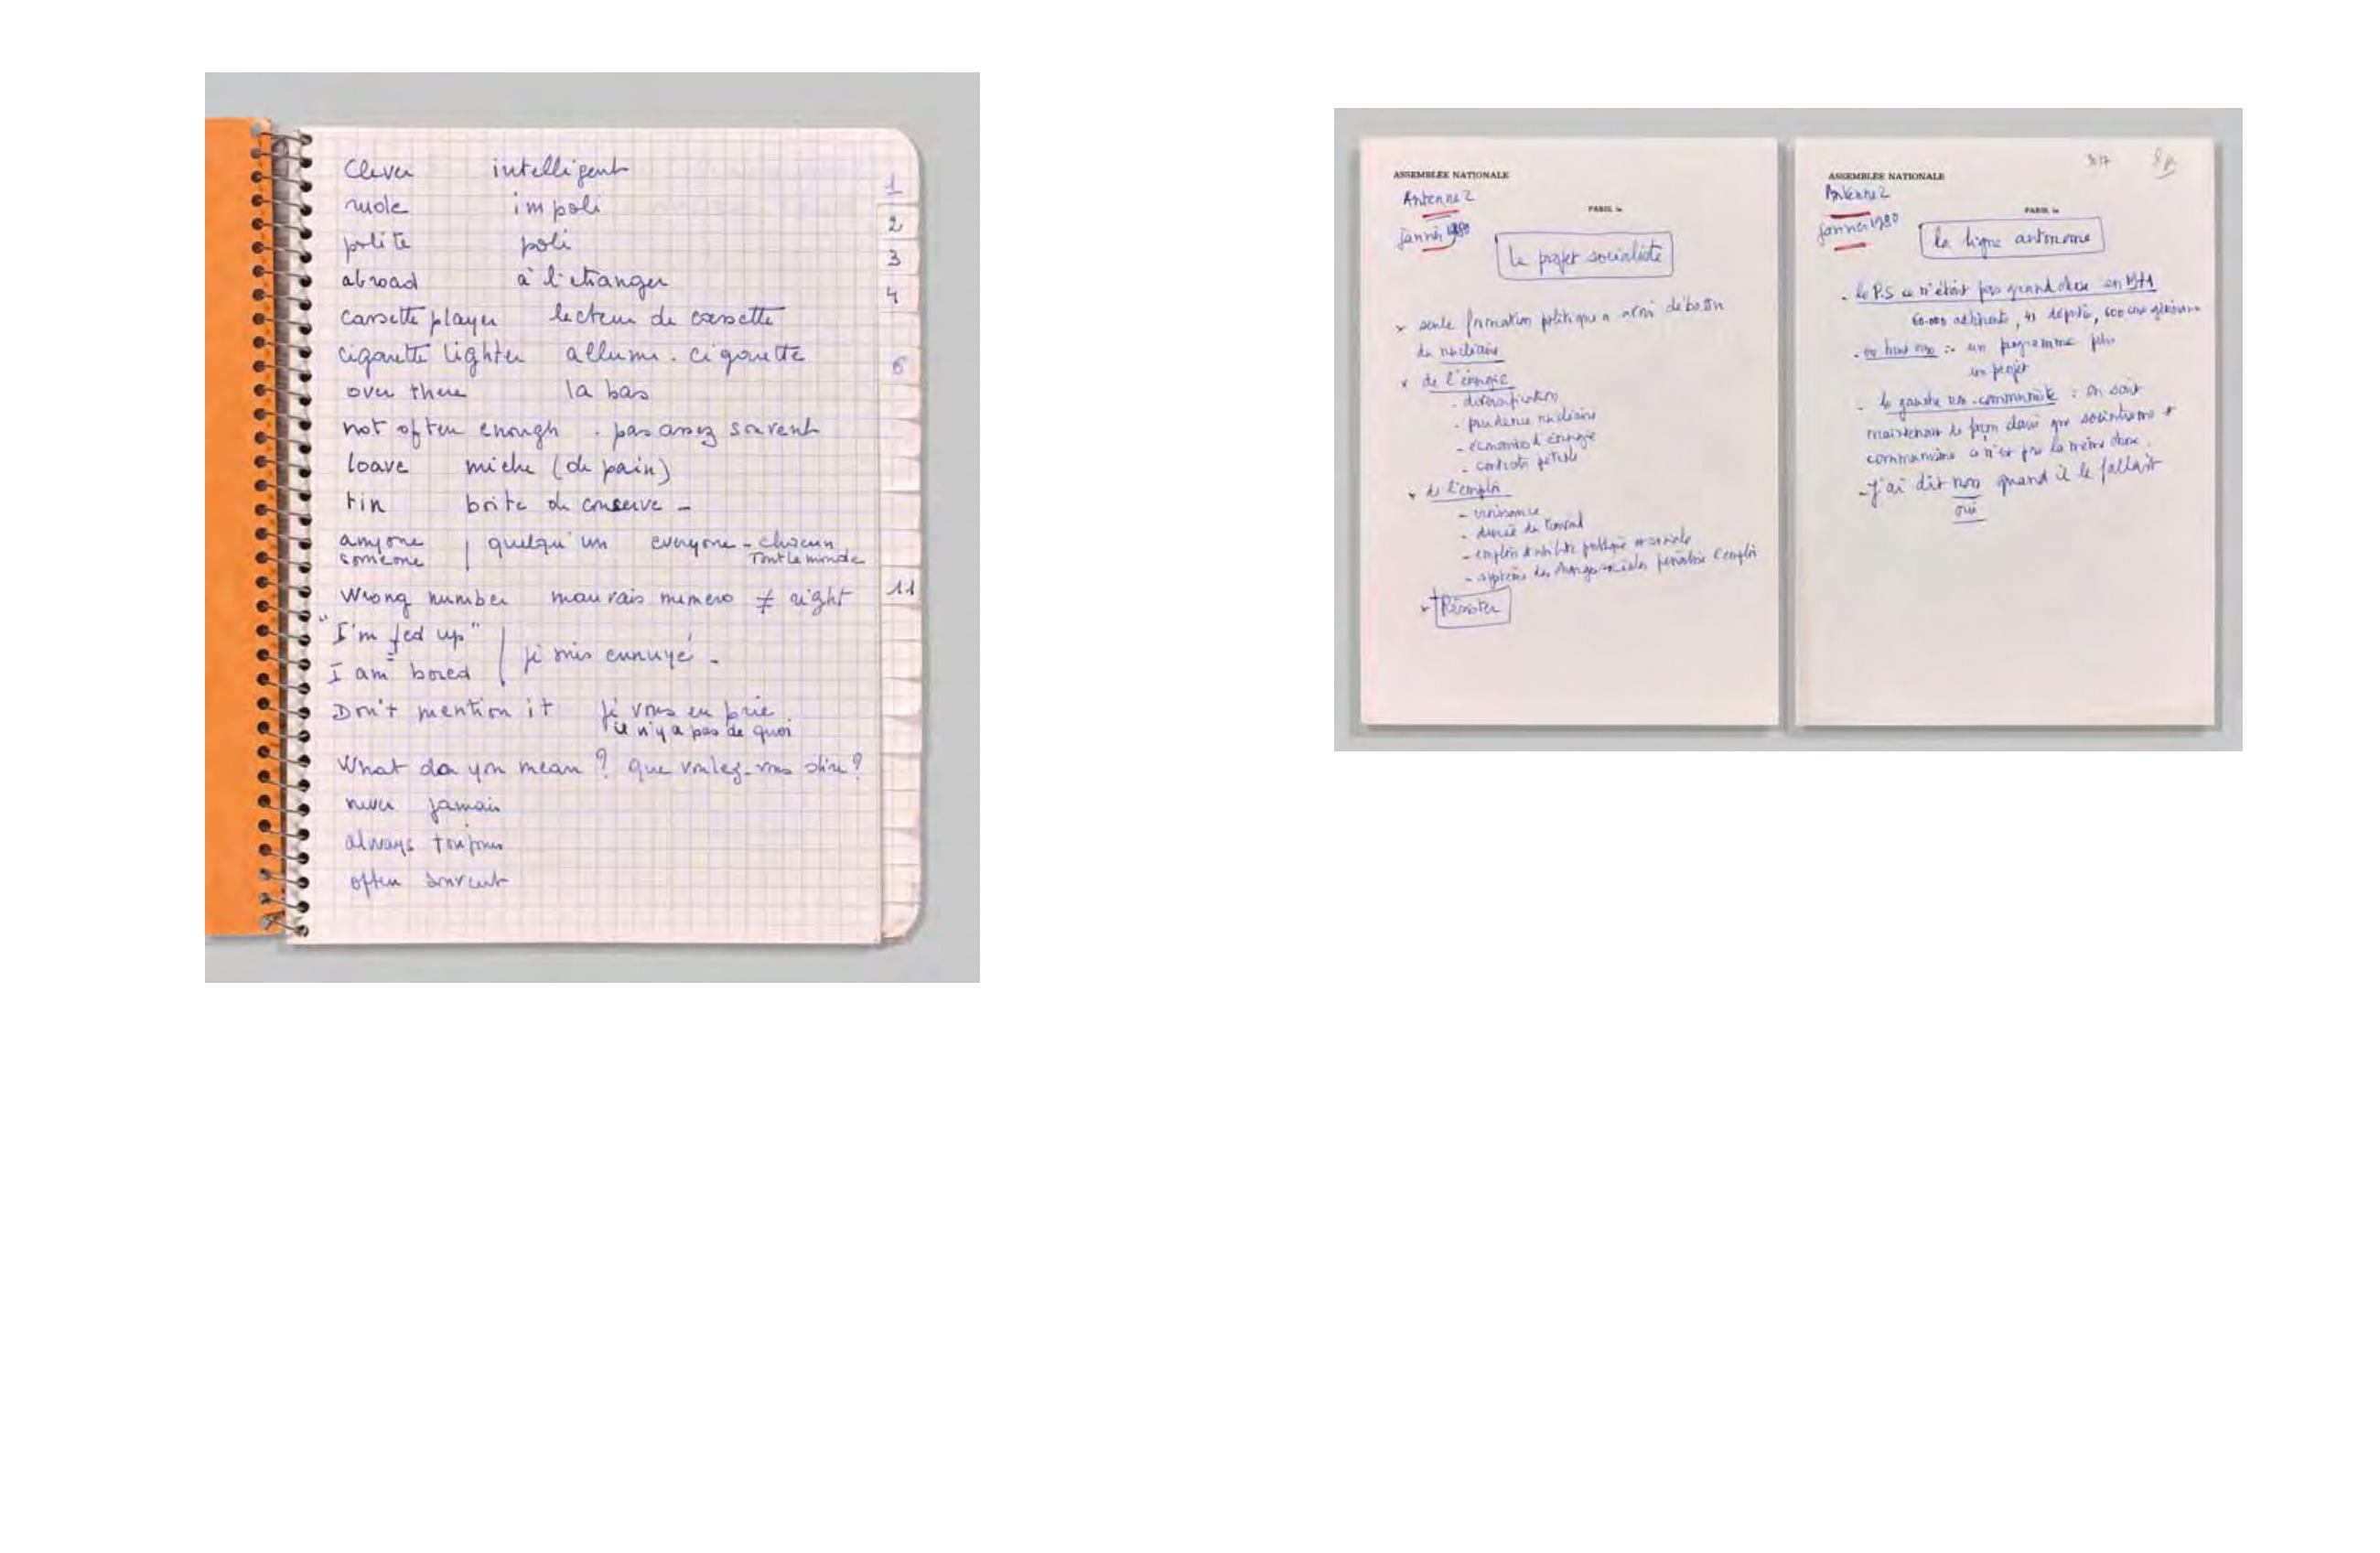 Clever intelligent
rude impoli
polite poli
abroad à l'étranger
cassette player lecteur de cassette
cigarette lighter allume.cigarette
over there la bas
not often enough . pas assez souvent
loave miche (de pain)
tin boite de conserve -
anyone quelqu'un everyone - chacun
someone Tout le monde
Wrong number mauvais numero ≠ right
"I'm fed up"
je suis ennuyé -
I am bored
Don't mention it je vous en prie
il n'y a pas de quoi
What do you mean ? que voulez-vous dire ?
never jamais
always toujours
often souvent
1
2
3
4
6
11
ASSEMBLÉE NATIONALE
Antenne 2
PARIS, le
janvier 1980
Le projet socialiste
x seule formation politique a avoir débattu
du nucléaire
x de l'énergie
- diversification
- prudence nucléaire
- économies d'énergie
- contrats pétrole
x de l'emploi
- croissance
- durée du travail
- emplois d'utilité publique et sociale
- système des charges sociales pénalise l'emploi
Résister
317
ASSEMBLÉE NATIONALE
Antenne 2
PARIS, le
janvier 1980
la ligne autonome
- le P.S ce n'était pas grand chose en 1971
60.000 adhérents, députés, 600
- : un programme puis
un projet
- la gauche non-communiste : on sait
maintenant de façon claire que socialisme et
communisme ce n'est pas la même chose.
- J'ai dit non quand il le fallait
oui